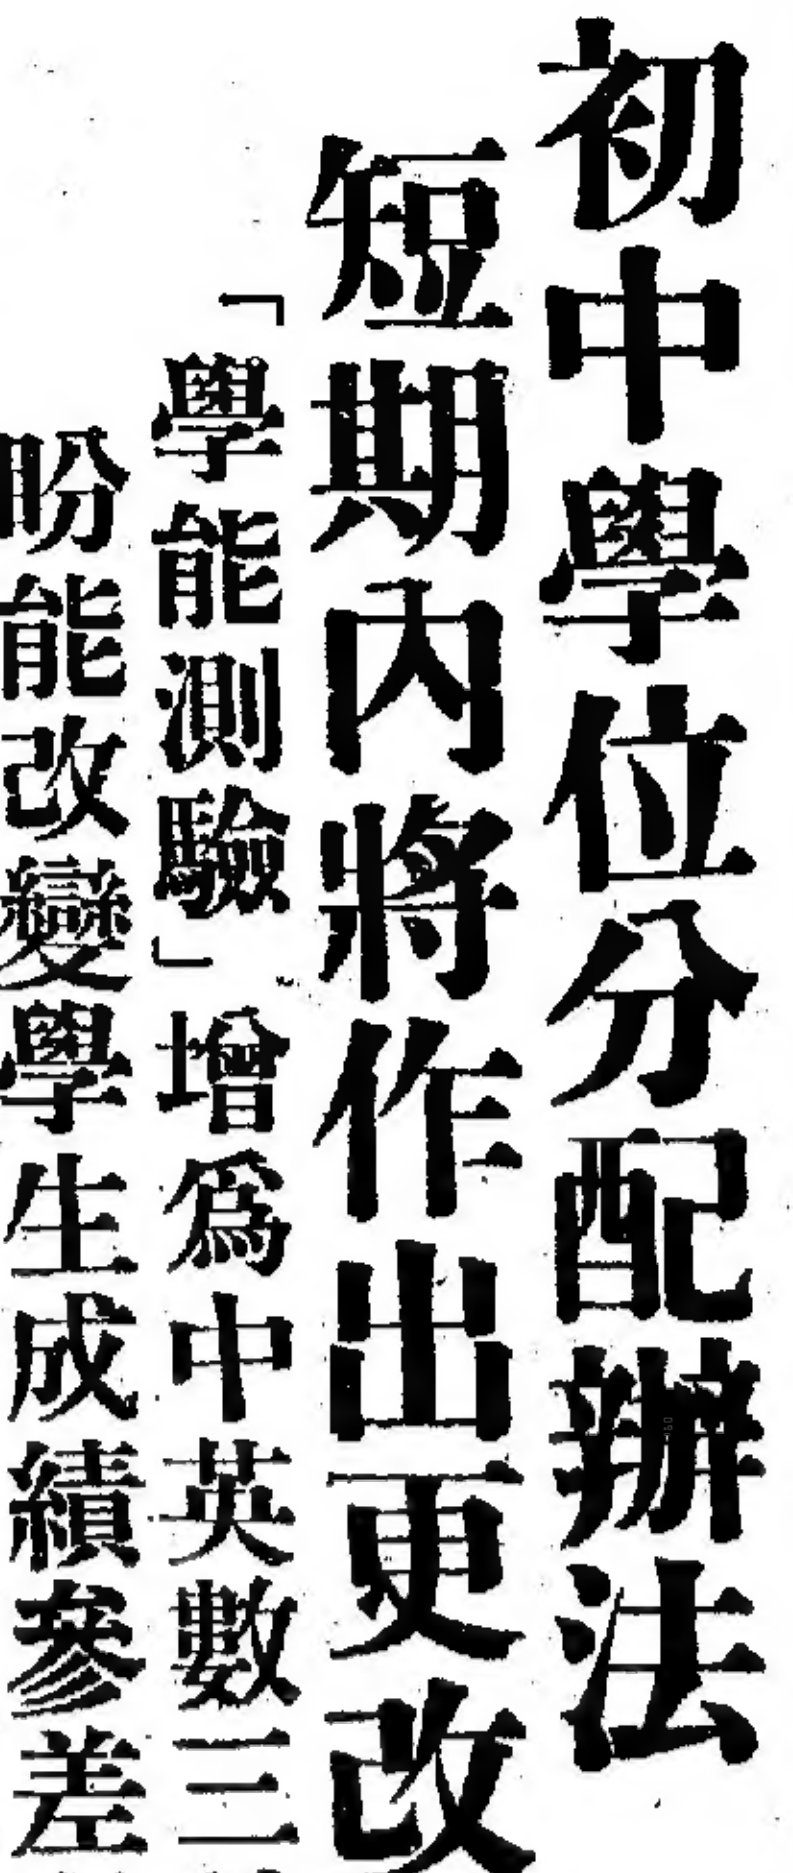 初中學位分配辦法
短期內將作出更改
「學能測驗」增爲中英數三
盼能改變學生成績參差